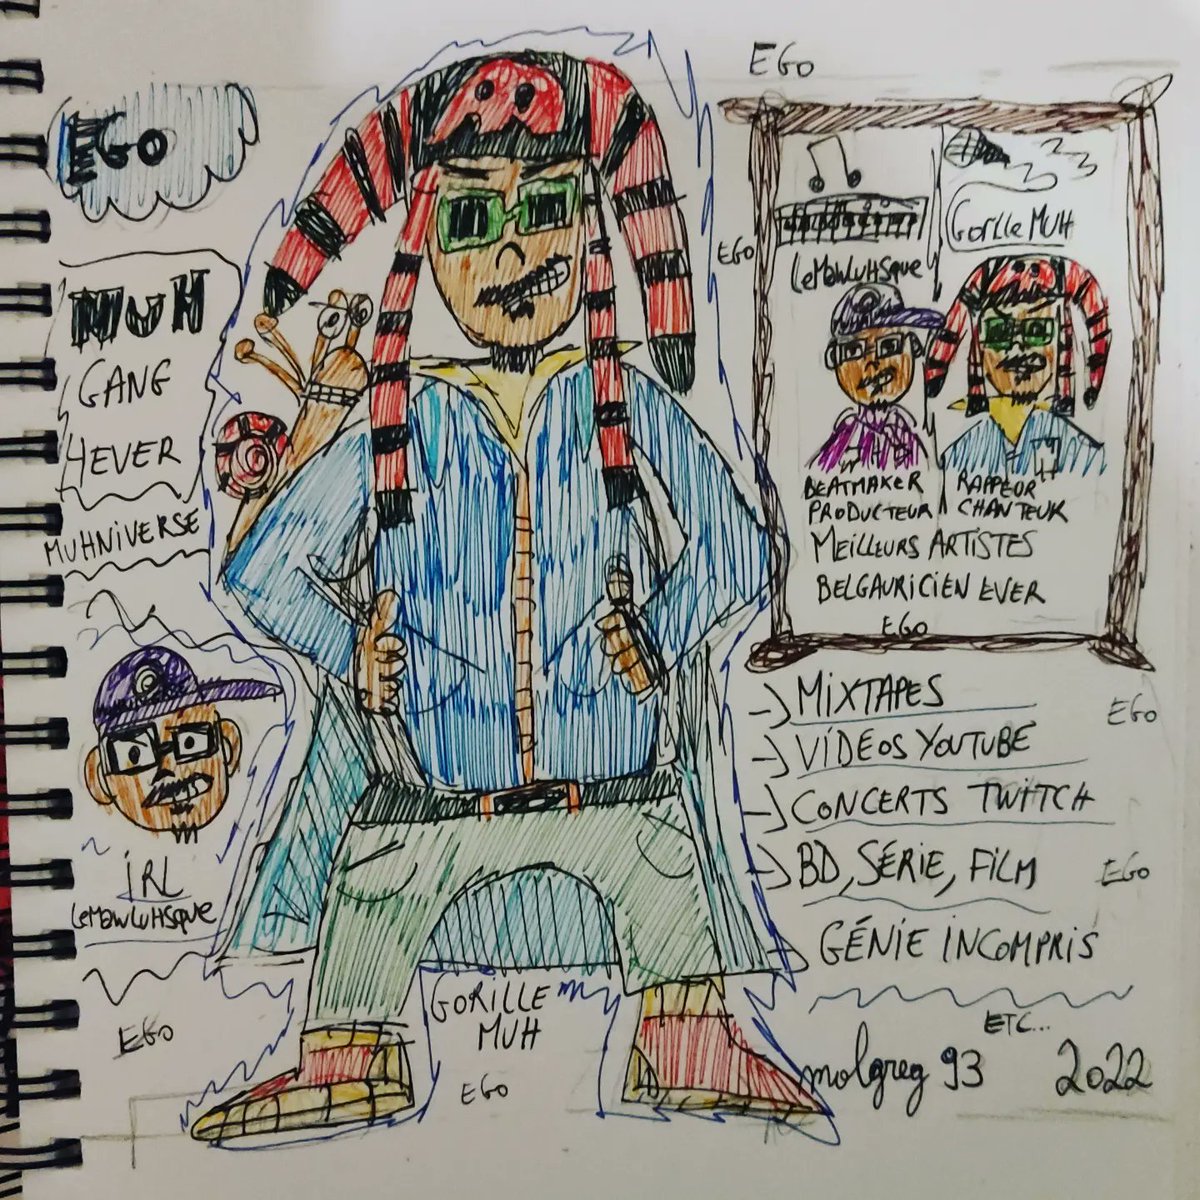 EGO
MUH
GANG
4EVER
MUHNIVERSE
IRL
LeMawLuHSque
EGO
GORILLE
MUH
EGO
EGO
EGO
LeMawLuHSque
Gorille MUH
BEATMAKER
PRODUCTEUR
RAPPEUR
CHANTEUR
MEILLEURS ARTISTES
BELGAURICIEN EVER
EGO
→ MIXTAPES
EGO
→ VIDEOS YOUTUBE
→ CONCERTS TWITCH
→ BD, SÉRIE, FILM
EGO
→ GÉNIE INCOMPRIS
ETC...
molgreg 93 2022